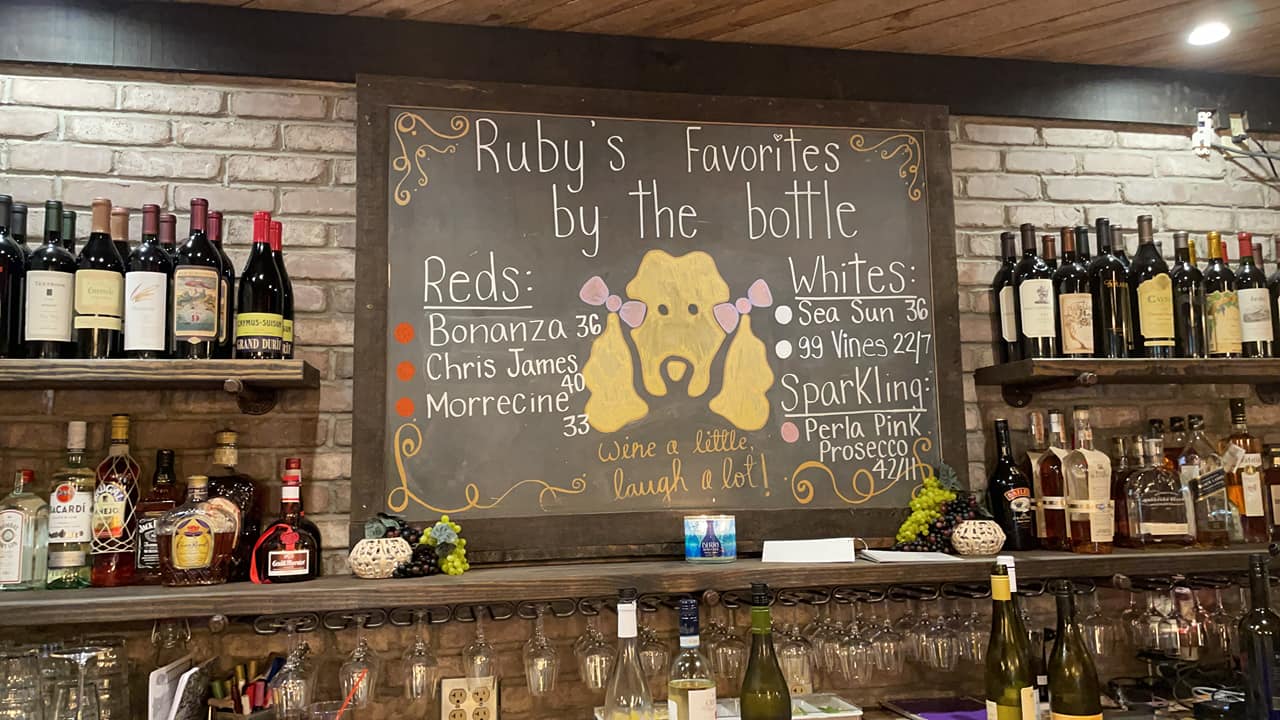 Ruby's Favorites
by the bottle
Reds:
Bonanza 36
Chris James
40
Morrecine
33
Whites:
Sea Sun 36
99 Vines 22/7
Sparkling:
Perla Pink
Prosecco
42/11
wine a little,
laugh a lot!
GRAND DURIF
BACARDÍ
AÑEJO
JACK
Grand Marnier
BAILEYS